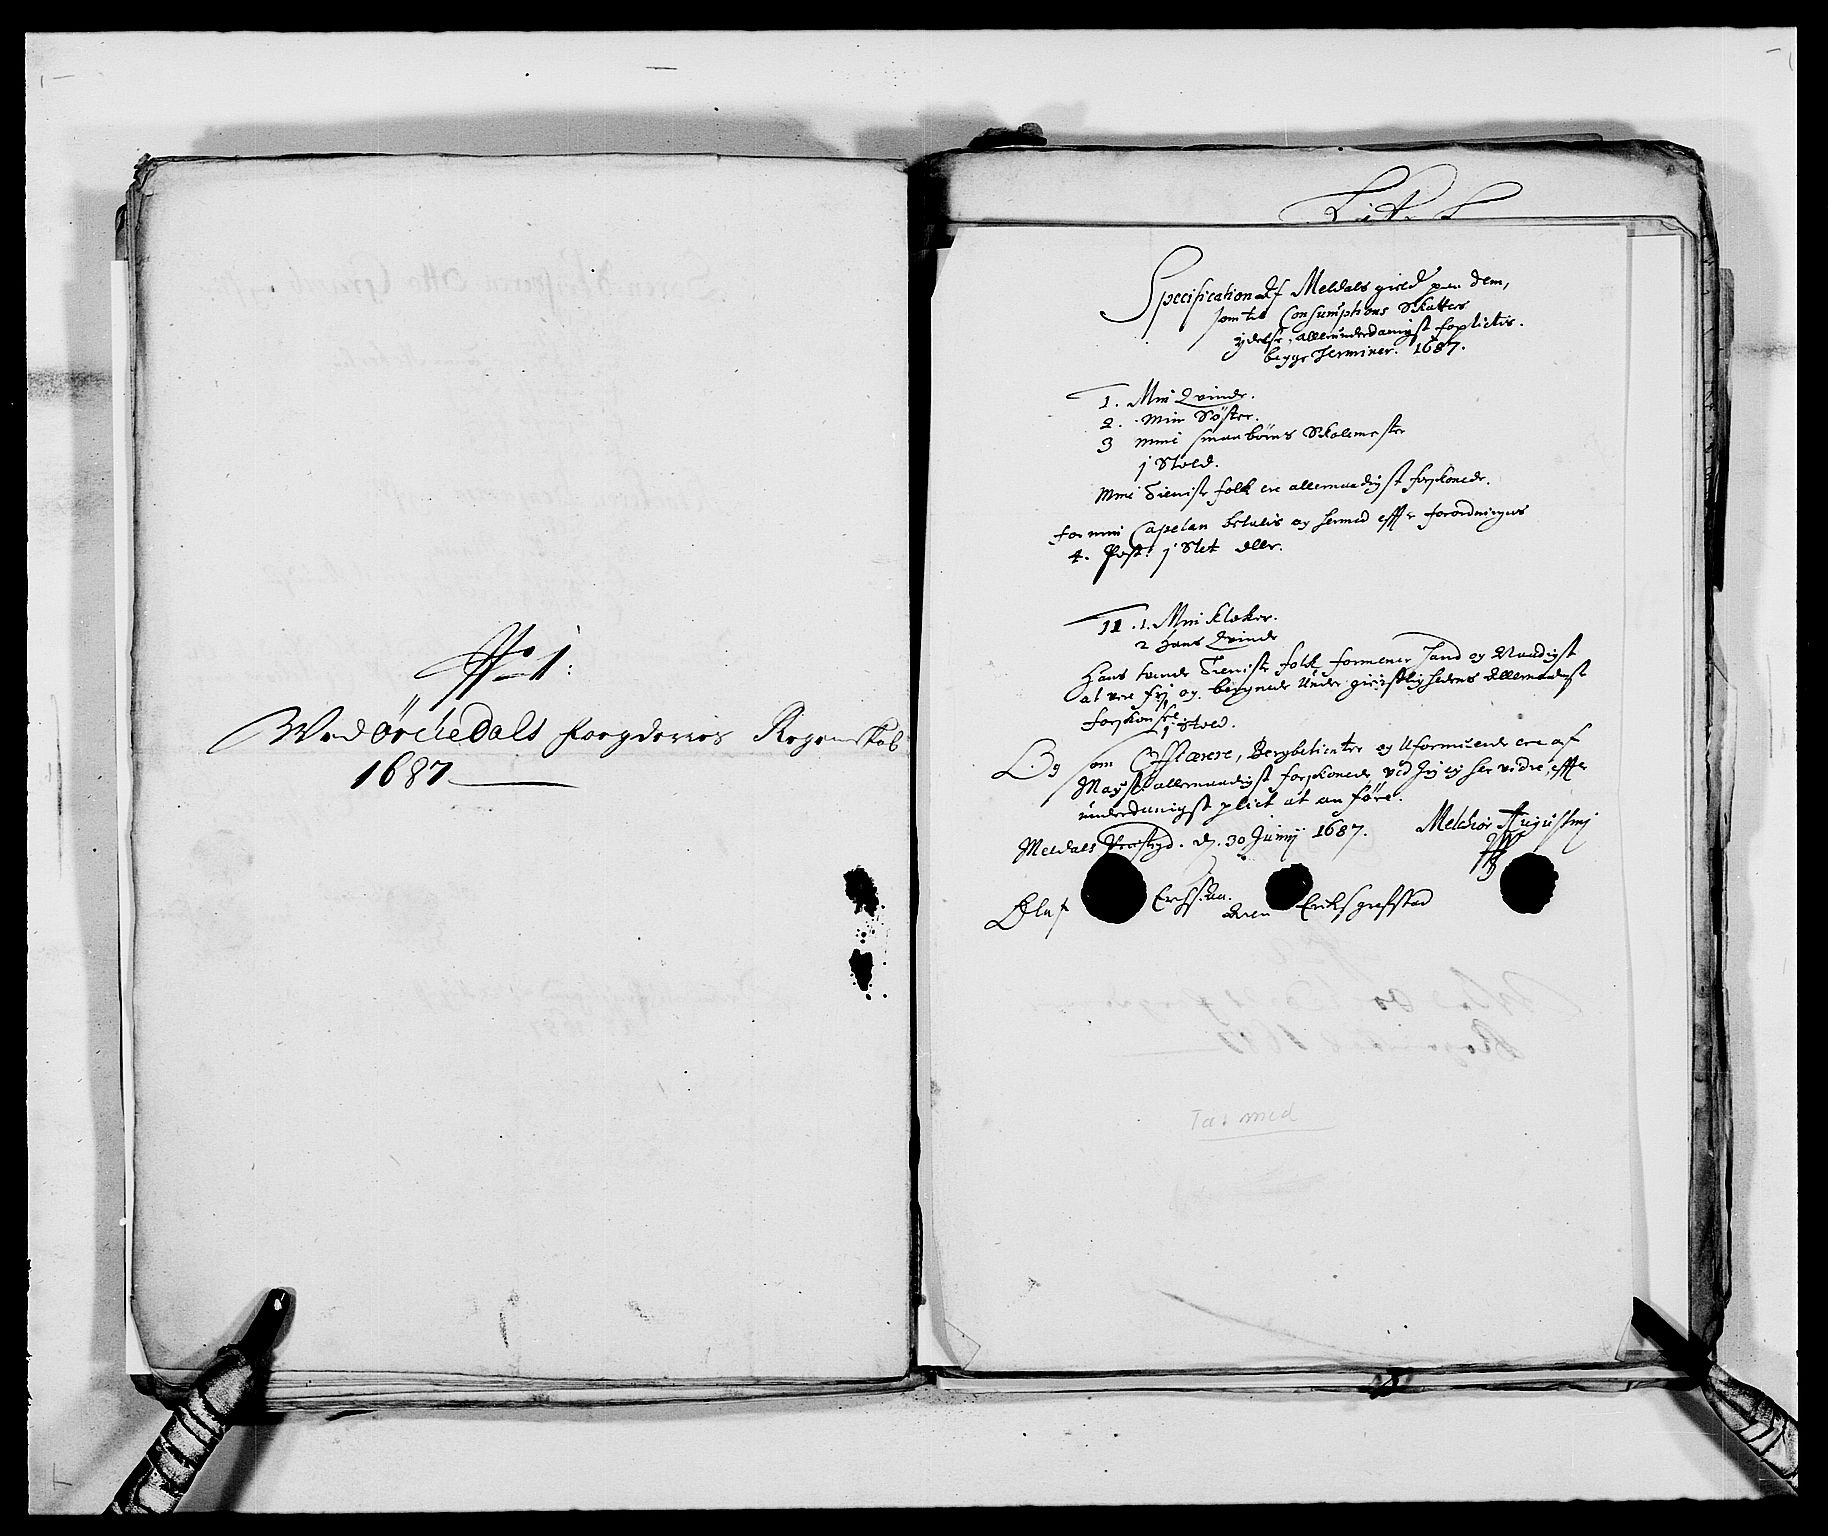 No 1:
Wed Örchedals fougderies Regenskab
1687
Lit. S
Specification Af Meldals gield paa dem,
som til Consumptions Skattens
ydelse, allerunderdanigst
begge Terminer. 1687.
1. Min Qvinde.
2. Min Söster.
3 mine smaa börns Skolemester
j Sted.
Mine Tieniste folk ere allernaadigst forskonede.
for min Capelan betalis og hermed effter forordningens
4. Post: j Slet daler.
11 . 1. Min Klocker.
2 Hans Qvinde
Hans tvende Tieniste folk formener Hand og Naadigst
at vere frj og begynede under gieistlighedens Allernaadigst
forskonsel
j Sted.
Og som Officerere, Bergbetienter og Uformuende ere af
Mayst: allernaadigst forskonede, ved Jeg ej her vidre, effter
underdanigst plict at anföre.
Meldals Præstegd. d. 30 Junij 1687. Melchior Augustinj
Oluf Erichssön. Eriksgrefstad
Tat med